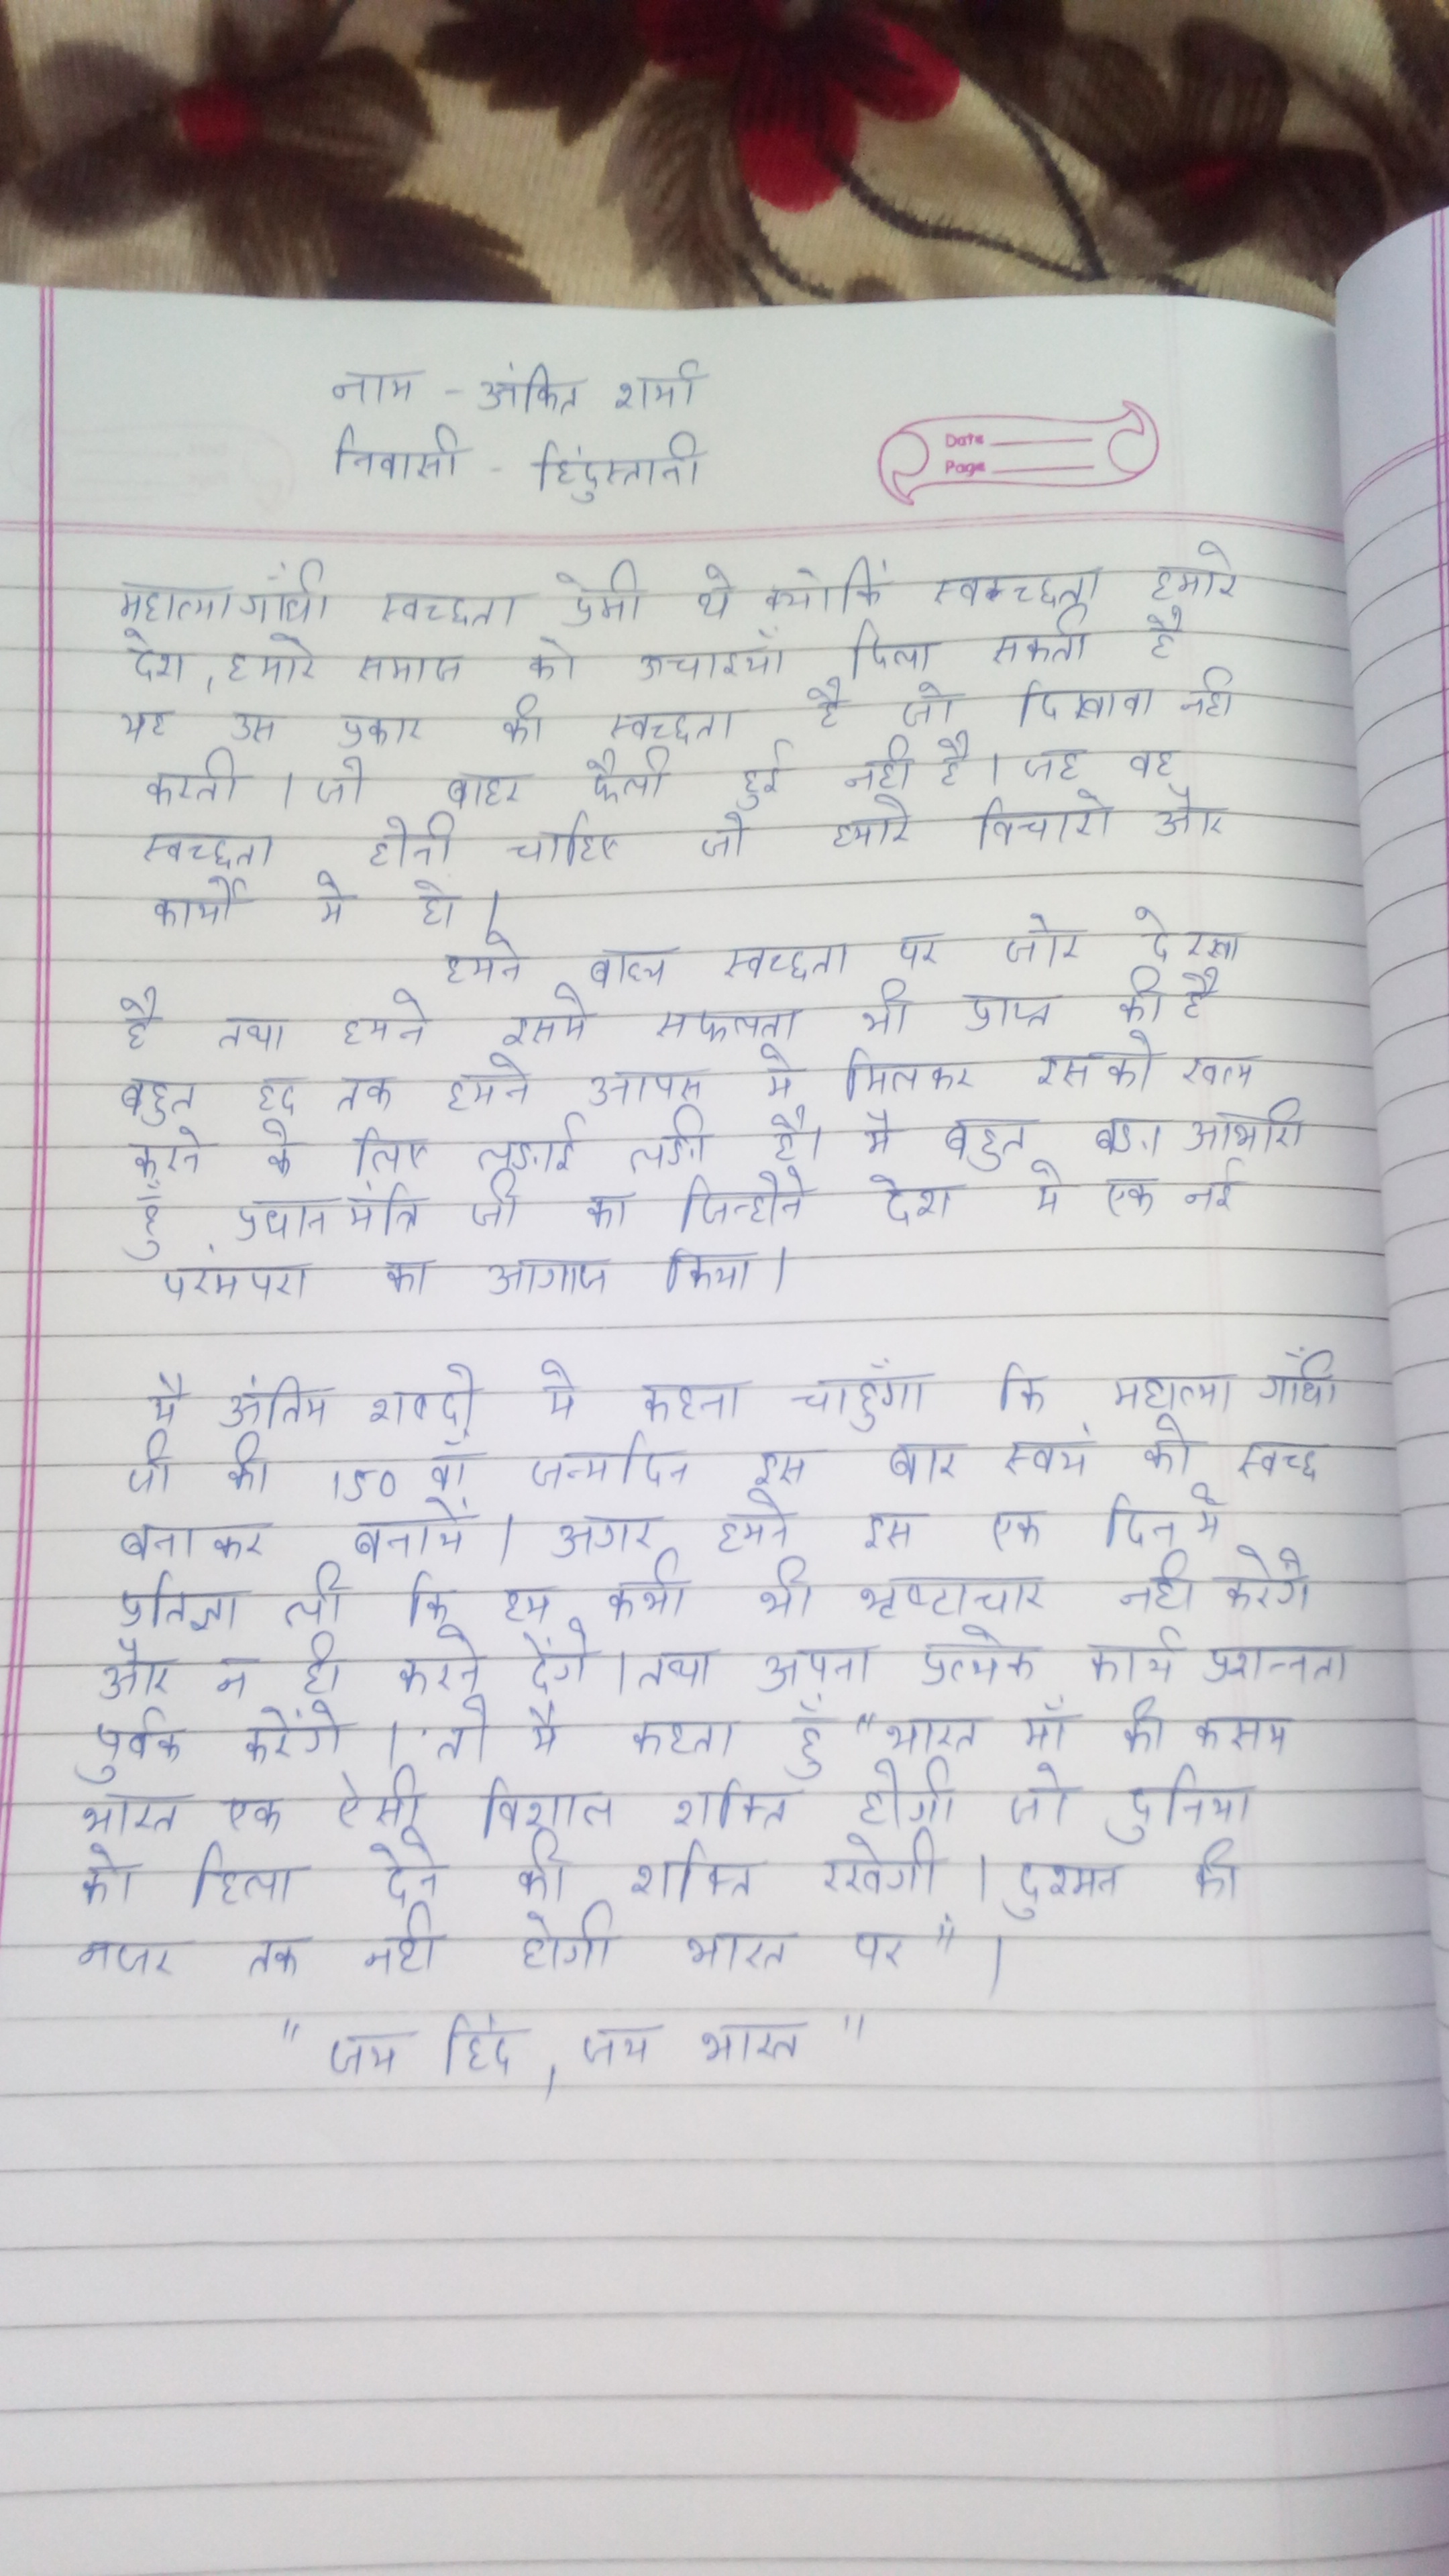 नाम - अंकित शर्मा
निवासी - हिंदुस्तानी
Date
Page
महात्मा गाँधी स्वच्छता प्रेमी थे क्योकिं स्वच्छता हमारे
देश, हमारे समाज को उचाइयाँ दिला सकती है
यह उस प्रकार की स्वच्छता है जो दिखावा नही
करती । जो बाहर फैली हुई नही है । जह वह
स्वच्छता होनी चाहिए जो हमारे विचारो और
कार्यो मे हो ।
हमने बाह्य स्वच्छता पर जोर दे रखा
है तथा हमने इसमे सफलता भी प्राप्त की है
बहुत हद तक हमने आपस मे मिलकर इसको खत्म
करने के लिए लङाई लङी है। मै बहुत बङा आभारी
हुँ प्रधानमंत्रि जी का जिन्होने देश मे एक नई
परंमपरा का आगाज किया ।
मै अंतिम शब्दो मे कहना चाहुँगा कि महात्मा गाँधी
जी की 150 वाँ जन्मदिन इस बार स्वयं को स्वच्छ
बनाकर बनायें । अगर हमने इस एक दिन मे
प्रतिज्ञा ली कि हम कभी भी भृष्टाचार नही करेगे
और न ही करने देंगे । तथा अपना प्रत्येक कार्य प्रशन्नता
पुर्वक करेंगे । तो मै कहता हुँ "भारत माँ की कसम
भारत एक ऐसी विशाल शक्ति होगी जो दुनिया
को हिला देने की शक्ति रखेगी । दुश्मन की
नजर तक नही होगी भारत पर" ।
" जय हिंद , जय भारत "